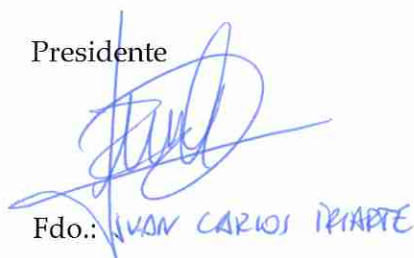 Presidente
Fdo.: JUAN CARLOS IRIARTE